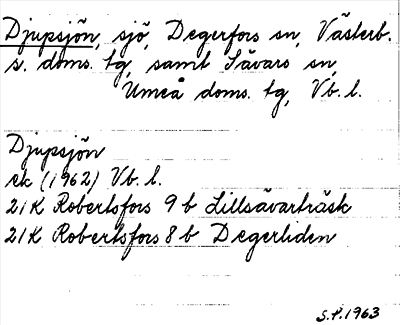 Djupsjön, sjö, Degerfors sn, Västerb.
s. doms. tg, samt Sävars sn,
Umeå doms. tg, Vb. l.
Djupsjön
ek (1962) Vb. l.
21K Robertsfors 9 b Lillsävarträsk
21K Robertsfors 8 b Degerliden
S.P. 1963